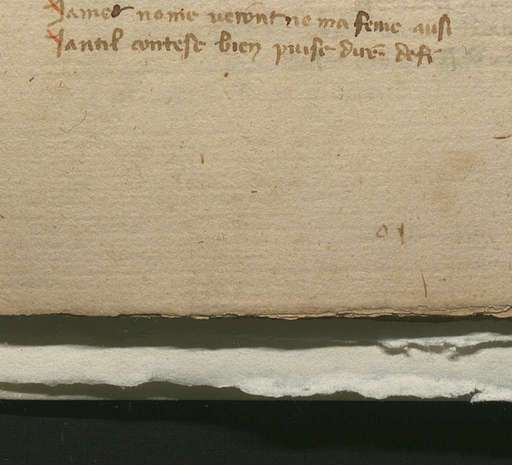 Jamer nome veront ne ma feme ausi
Jantil contese bien puise dire desi